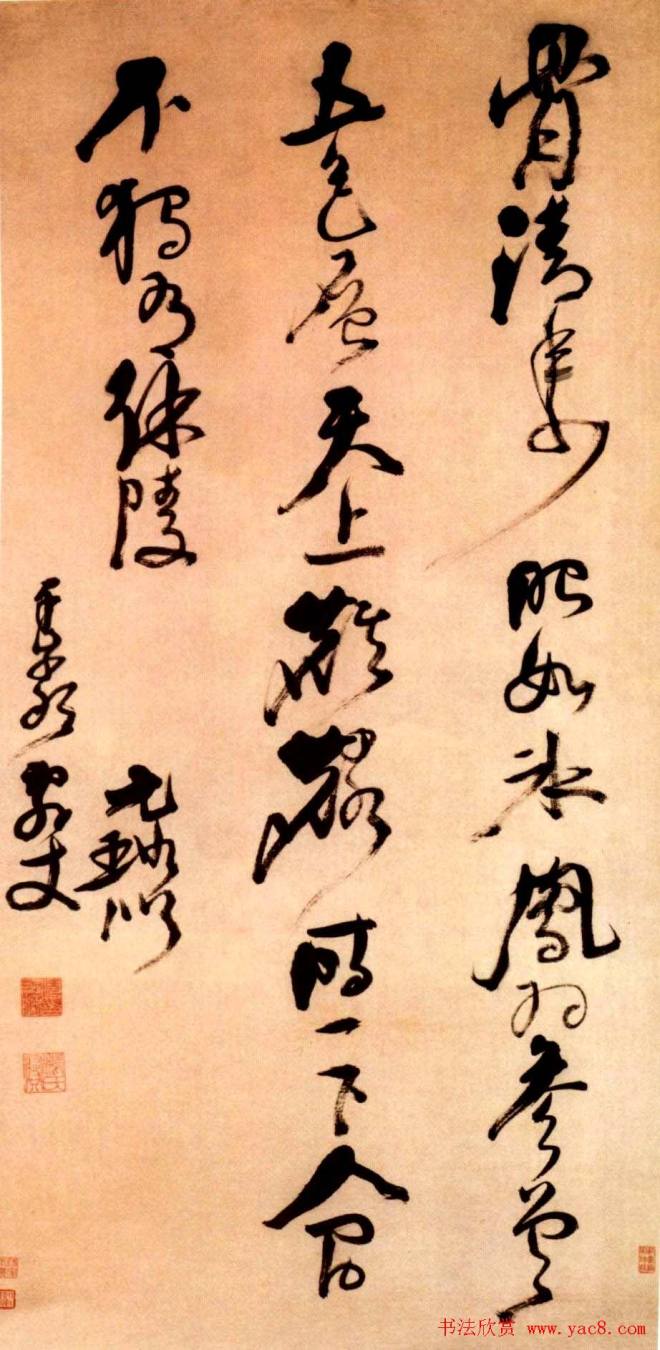 骨清年少眼如冰鳳羽參差
五色層天上麒麟時一下人間
不獨有徐陵
元璐似
詞丈
书法欣赏 www.yac8.com